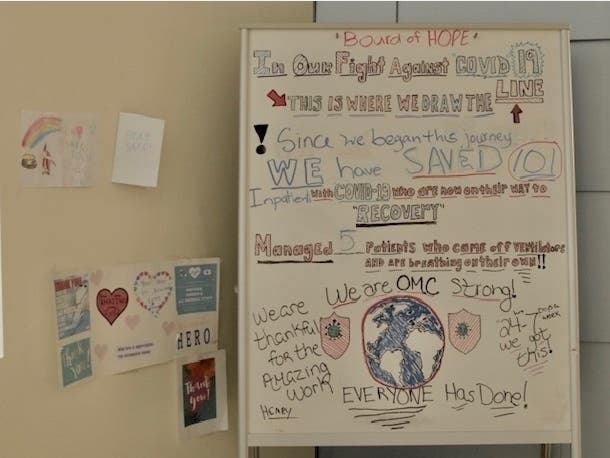 "Board of HOPE"
In Our Fight Against COVID 19
THIS IS WHERE WE DRAW THE LINE
! Since we began this journey
WE have SAVED 101
Inpatient with COVID-19 who are now on their WAY to
"RECOVERY"
Managed 5 Patients who came off ventilators
AND are breathing on their own!!
We are OMC Strong!
We are
thankful
for the
Amazing
work
Henry
"24-7
we got
this!
EVERYONE Has Done!
STAY
SAFE!
THANK YOU
AMAZING
HERO
Thank
you!